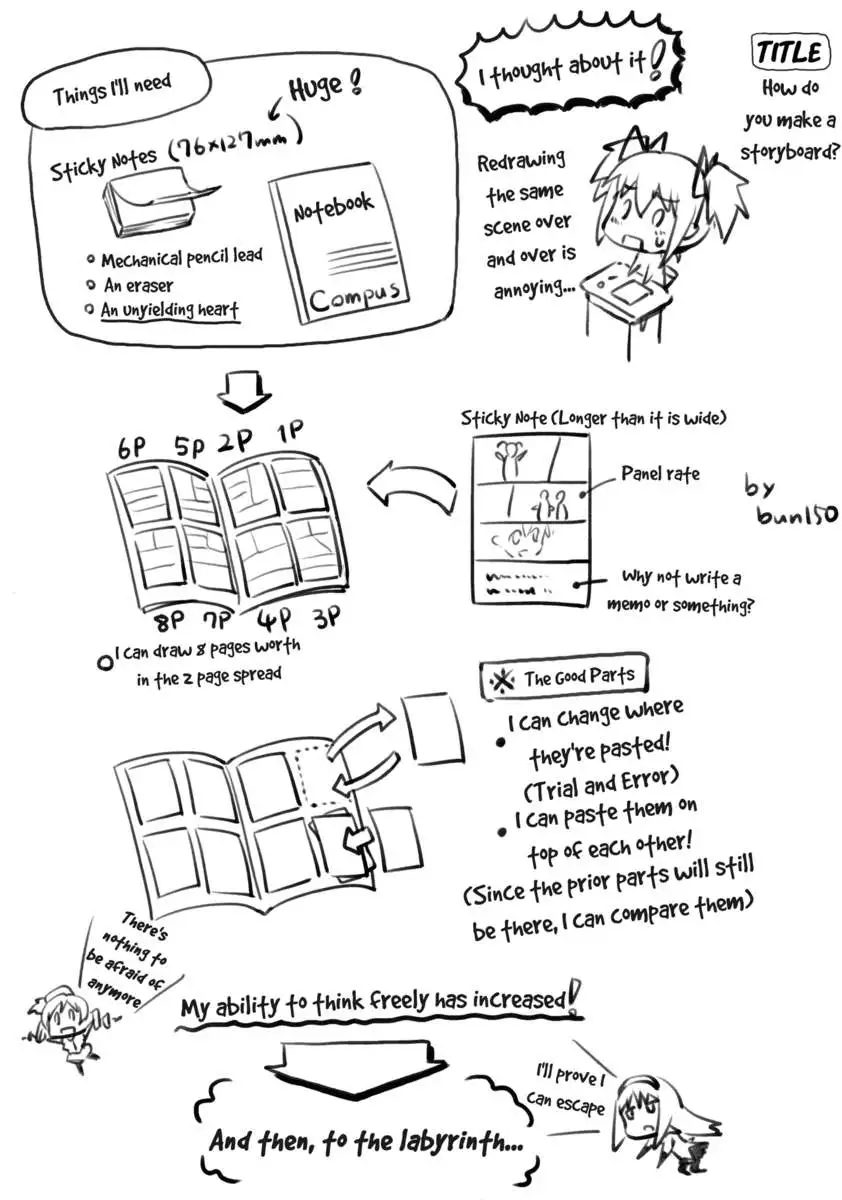 TITLE
How do
you make a
storyboard?
I thought about it!
Redrawing
the same
scene over
and over is
annoying...
Things I'll need
Huge!
Sticky Notes (76×127mm)
Notebook
Compus
Mechanical pencil lead
An eraser
An unyielding heart
Sticky Note (Longer than it is wide)
Panel rate
Why not write a
memo or something?
by
bun150
6P 5P 2P 1P
8P 7P 4P 3P
I can draw 8 pages worth
in the 2 page spread
※ The Good Parts
• I can change where
they're pasted!
(Trial and Error)
• I can paste them on
top of each other!
(Since the prior parts will still
be there, I can compare them)
There's
nothing to
be afraid of
anymore
My ability to think freely has increased!
I'll prove I
can escape
And then, to the labyrinth...